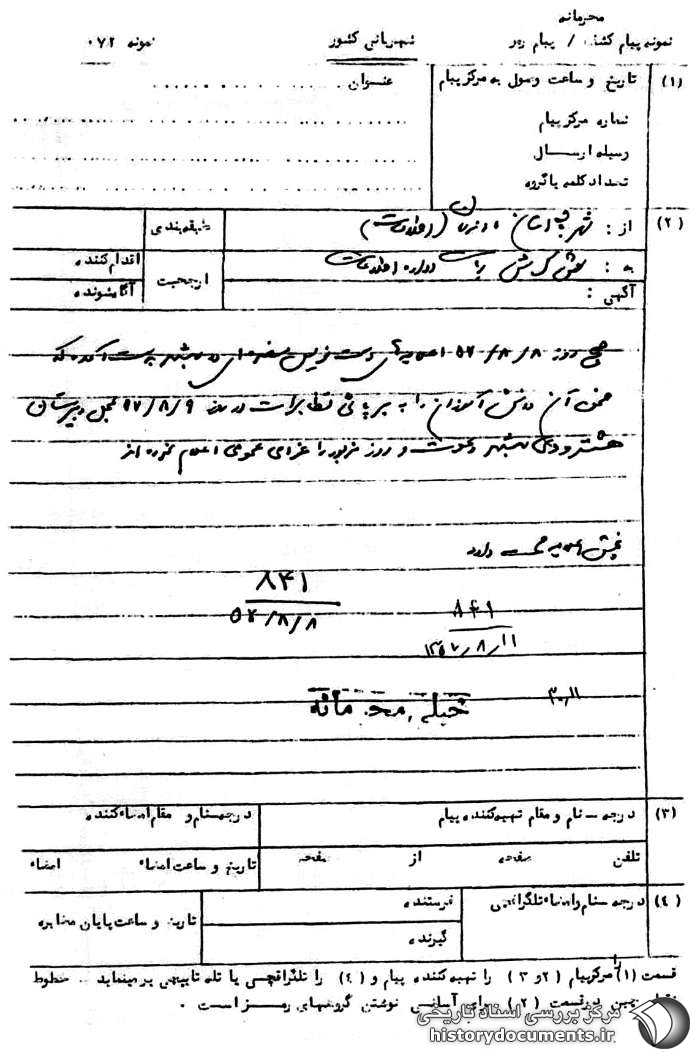 محرمانه
نمونه پیام کشف / پیام رمز
شهربانی کشور
نمونه ۰۷۲
(۱) تاریخ و ساعت وصول به مرکز پیام
عنوان
شماره مرکز پیام
وسیله ارسال
تعداد کلمه یا گروه
(۲) از : شهربانی استان مازندران (اطلاعات)
طبقه بندی
به :
اداره اطلاعات
ارجحیت
اقدام کننده
آگاه شونده
آگهی :
صبح روز ۵۷/۸/۸ اعلامیه‌ای دست نویس در شهر بدست آمده که
ضمن آن دانش آموزان را به برپائی تظاهرات در روز ۵۷/۸/۹ محل دبیرستان
هشترودی دعوت و روز مزبور را عزای عمومی اعلام نموده‌اند
۸۴۱
۵۷/۸/۸
۸۴۱
۱۳۵۷/۸/۱۱
۲۰.۱۱
خیلی محرمانه
(۳) درجه - نام و مقام تهیه کننده پیام
درجه - نام و مقام امضاء کننده
تلفن صفحه از صفحه
تاریخ و ساعت امضاء امضاء
(۴) درجه - نام و امضاء تلگرافچی
فرستنده
گیرنده
تاریخ و ساعت پایان مخابره
قسمت (۱) را مرکز پیام (۲ و ۳) را تهیه کننده پیام و (۴) را تلگرافچی یا تله تایپچی پر مینماید .. خطوط
نقطه چین در قسمت (۲) برای آسانی نوشتن گروههای رمز است .
مرکز بررسی اسناد تاریخی
historydocuments.ir